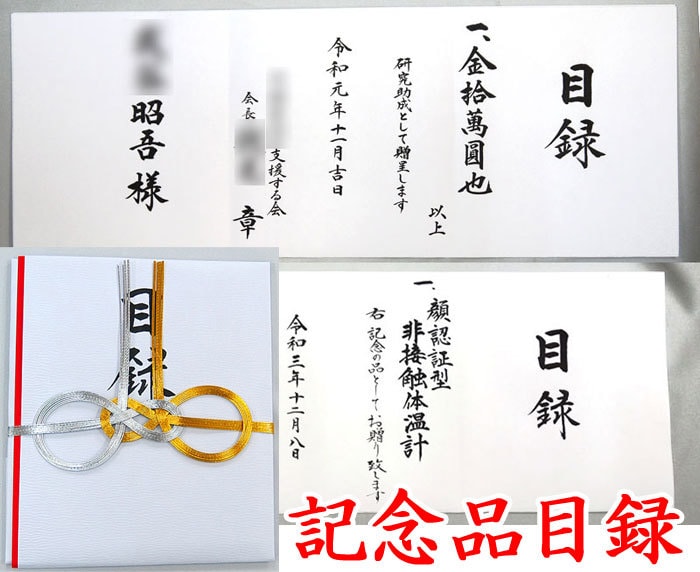 目録
一、金拾萬圓也
研究助成として贈呈します
以上
令和元年十一月吉日
支援する会
会長
章
昭吾様
目録
目録
一、顔認証型
非接触体温計
右記念の品としてお贈り致します
令和三年十二月八日
記念品目録